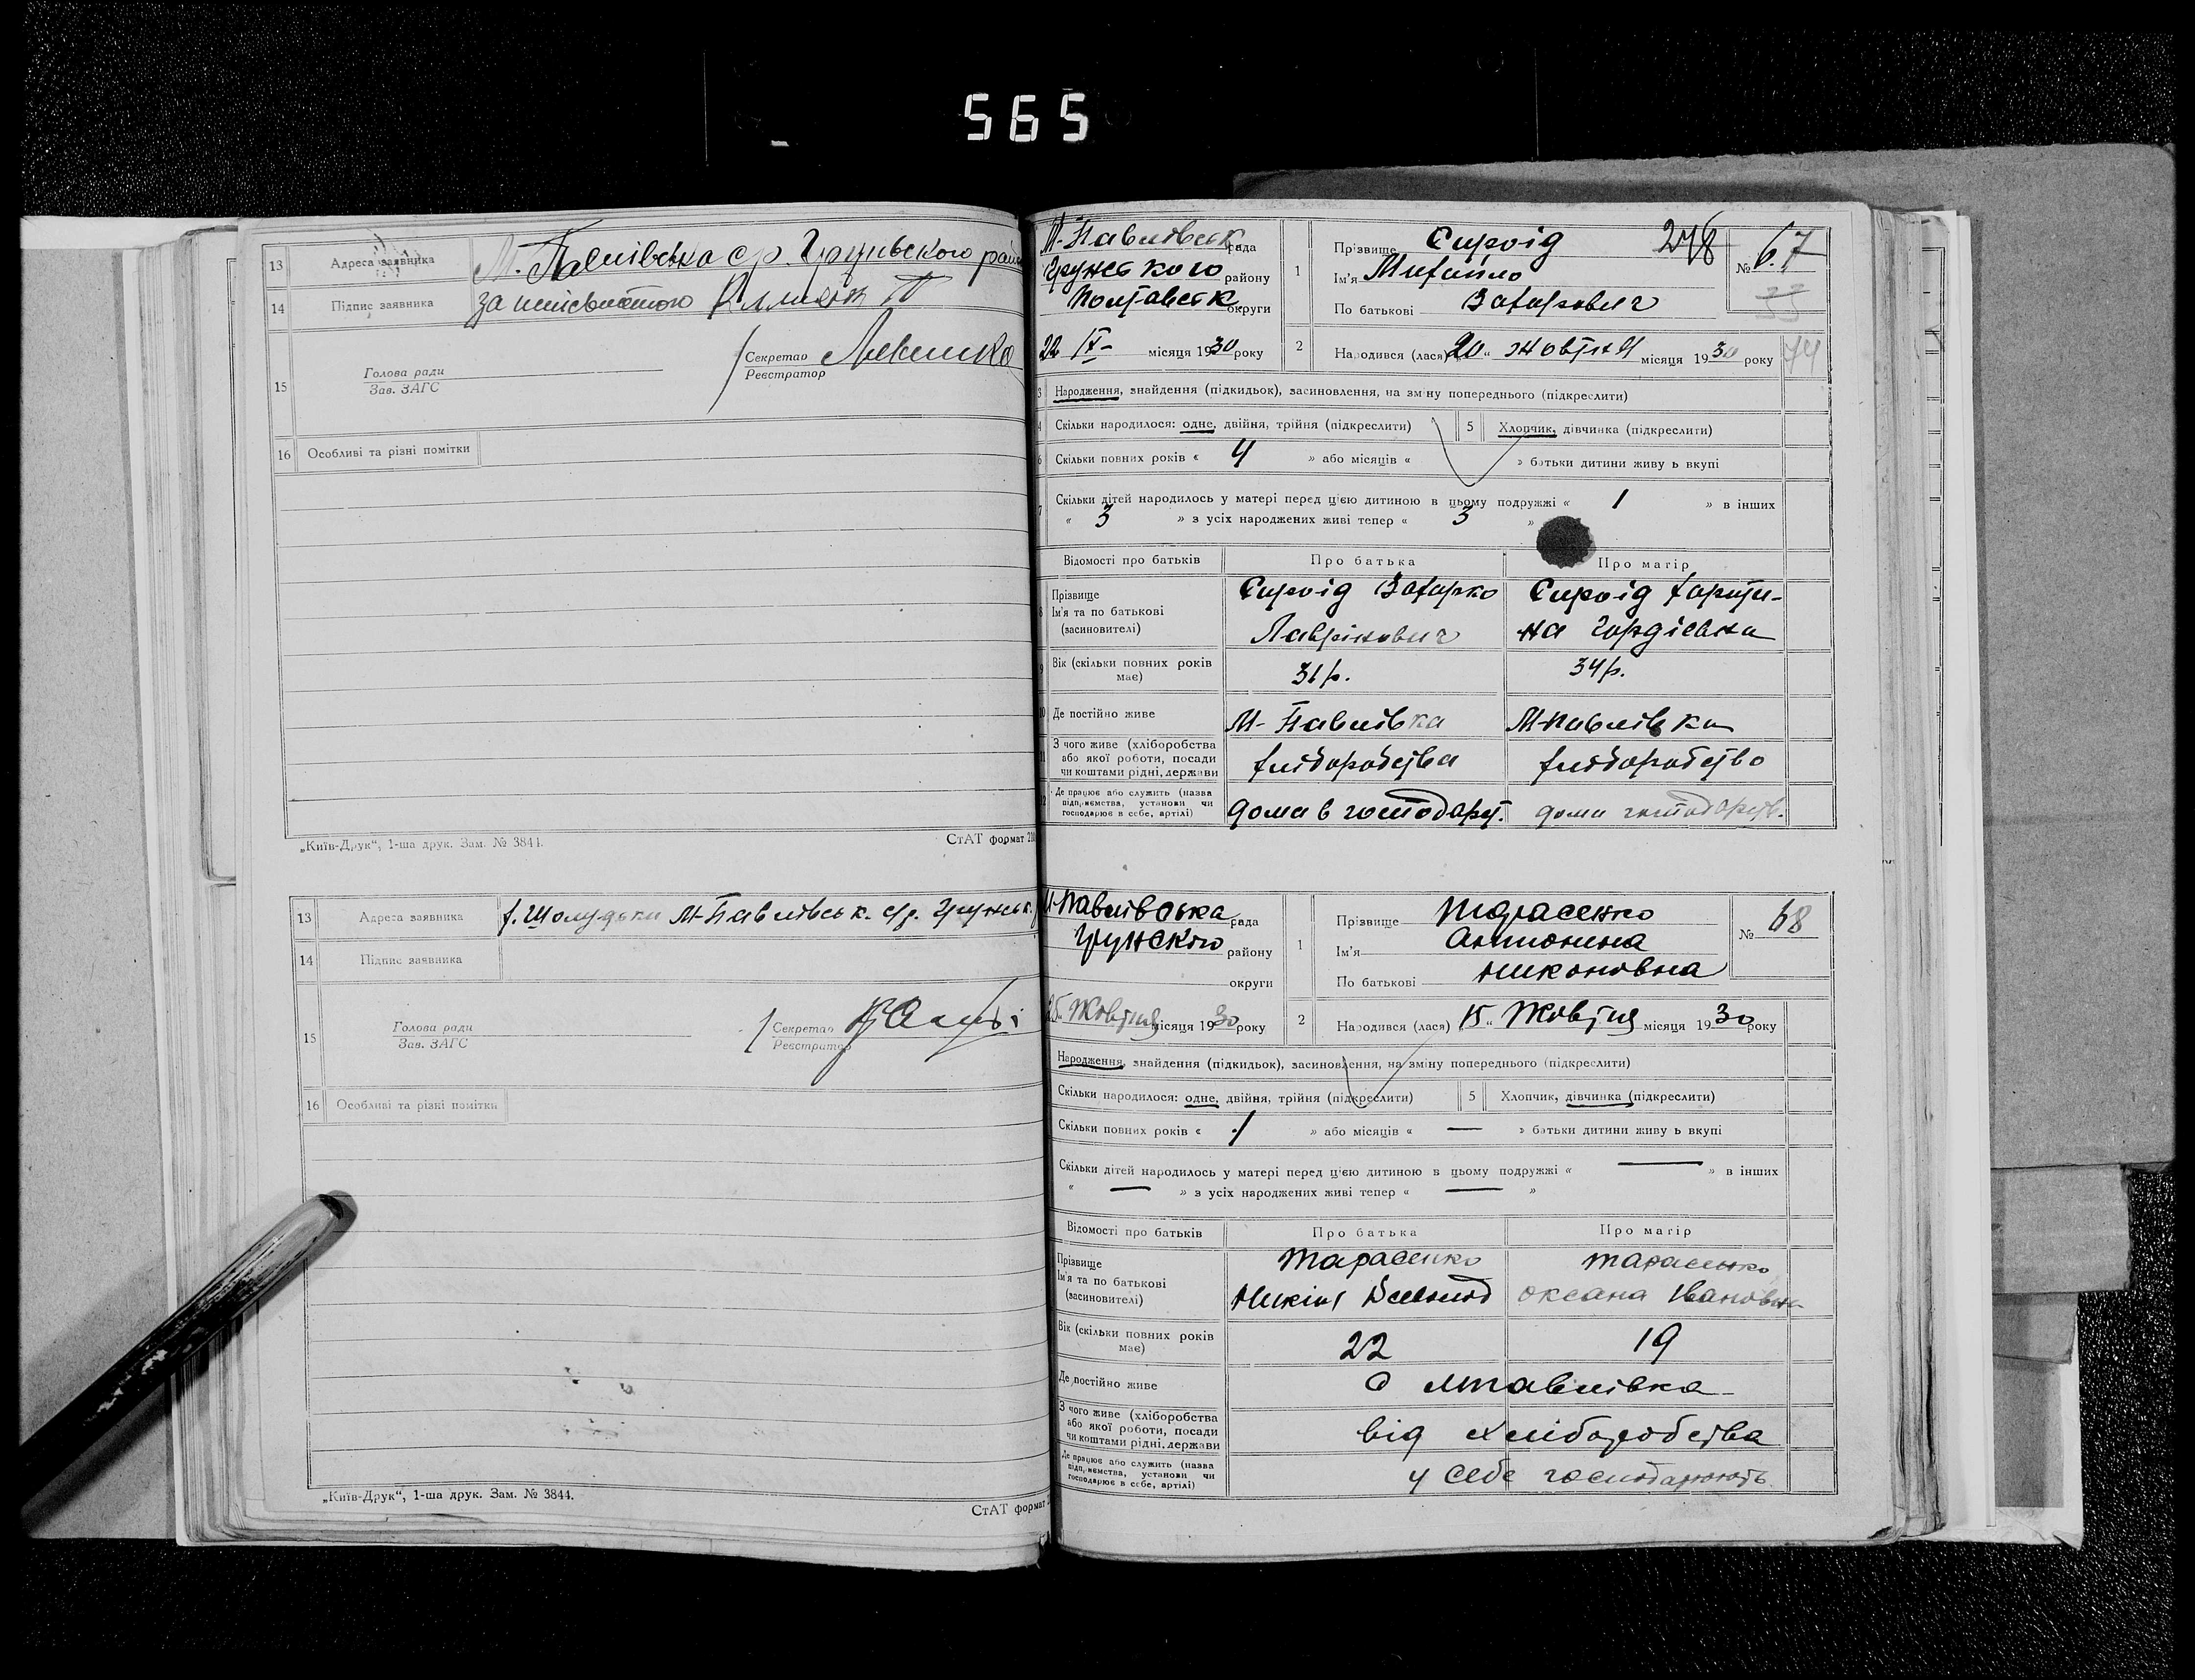 565
13 Адреса заявника М. Павлівська с/р. Грунського рай
14 Підпис заявника за неписьмотою
15 Голова ради
Зав. ЗАГС
Секретар
Реєстратор
16 Особливі та різні помітки
„Київ-Друк“, 1-ша друк. Зам. № 3844.
СтАТ формат
М-Павлівськ. рада
Грунського району
Полтавськ округи
22 IX- місяця 1930 року
1 Прізвище Сироїд
Ім'я Михайло
По батькові Захарович
278
№ 67
2 Народився (лася) „20“ жовтня місяця 1930 року
3 Народження, знайдення (підкидьок), засиновлення, на зміну попереднього (підкреслити)
4 Скільки народилося: одне, двійня, трійня (підкреслити) 5 Хлопчик, дівчинка (підкреслити)
6 Скільки повних років « 4 » або місяців « » батьки дитини живуть вкупі
7 Скільки дітей народилось у матері перед цією дитиною в цьому подружжі « 1 » в інших
« 3 » з усіх народжених живі тепер « 3 »
Відомості про батьків Про батька Про матір
8 Прізвище
Ім'я та по батькові
(засиновителі)
Сироїд Захарко
Лаврінович
Сироїд Харити-
на Гордіевна
9 Вік (скільки повних років має) 31 р. 34 р.
10 Де постійно живе М-Павлівка М-Павлівка
11 З чого живе (хліборобства
або якої роботи, посади
чи коштами рідні, держави
хліборобства хліборобство
12 Де працює або служить (назва
підприємства, установи чи
господарює в себе, артілі)
дома в господарст. дома господарств.
13 Адреса заявника х. Шолудьки М-Павлівськ. с/р. Грунськ.
14 Підпис заявника
15 Голова ради
Зав. ЗАГС
Секретар
Реєстратор
16 Особливі та різні помітки
„Київ-Друк“, 1-ша друк. Зам. № 3844.
СтАТ формат
М-Павлівська рада
Грунского району
округи
25 Жовтня місяця 1930 року
1 Прізвище Тарасенко
Ім'я Антонина
По батькові Никоновна
№ 68
2 Народився (лася) „15“ Жовтня місяця 1930 року
Народження, знайдення (підкидьок), засиновлення, на зміну попереднього (підкреслити)
Скільки народилося: одне, двійня, трійня (підкреслити) 5 Хлопчик, дівчинка (підкреслити)
Скільки повних років « 1 » або місяців « — » батьки дитини живуть вкупі
Скільки дітей народилось у матері перед цією дитиною в цьому подружжі « — » в інших
« — » з усіх народжених живі тепер « — »
Відомості про батьків Про батька Про матір
Прізвище
Ім'я та по батькові
(засиновителі)
Тарасенко
Никін
Тарасенко
Оксана Івановна
Вік (скільки повних років має) 22 19
Де постійно живе с МПавлівка
З чого живе (хліборобства
або якої роботи, посади
чи коштами рідні, держави
від хліборобства
Де працює або служить (назва
підприємства, установи чи
господарює в себе, артілі)
у себе господарюють